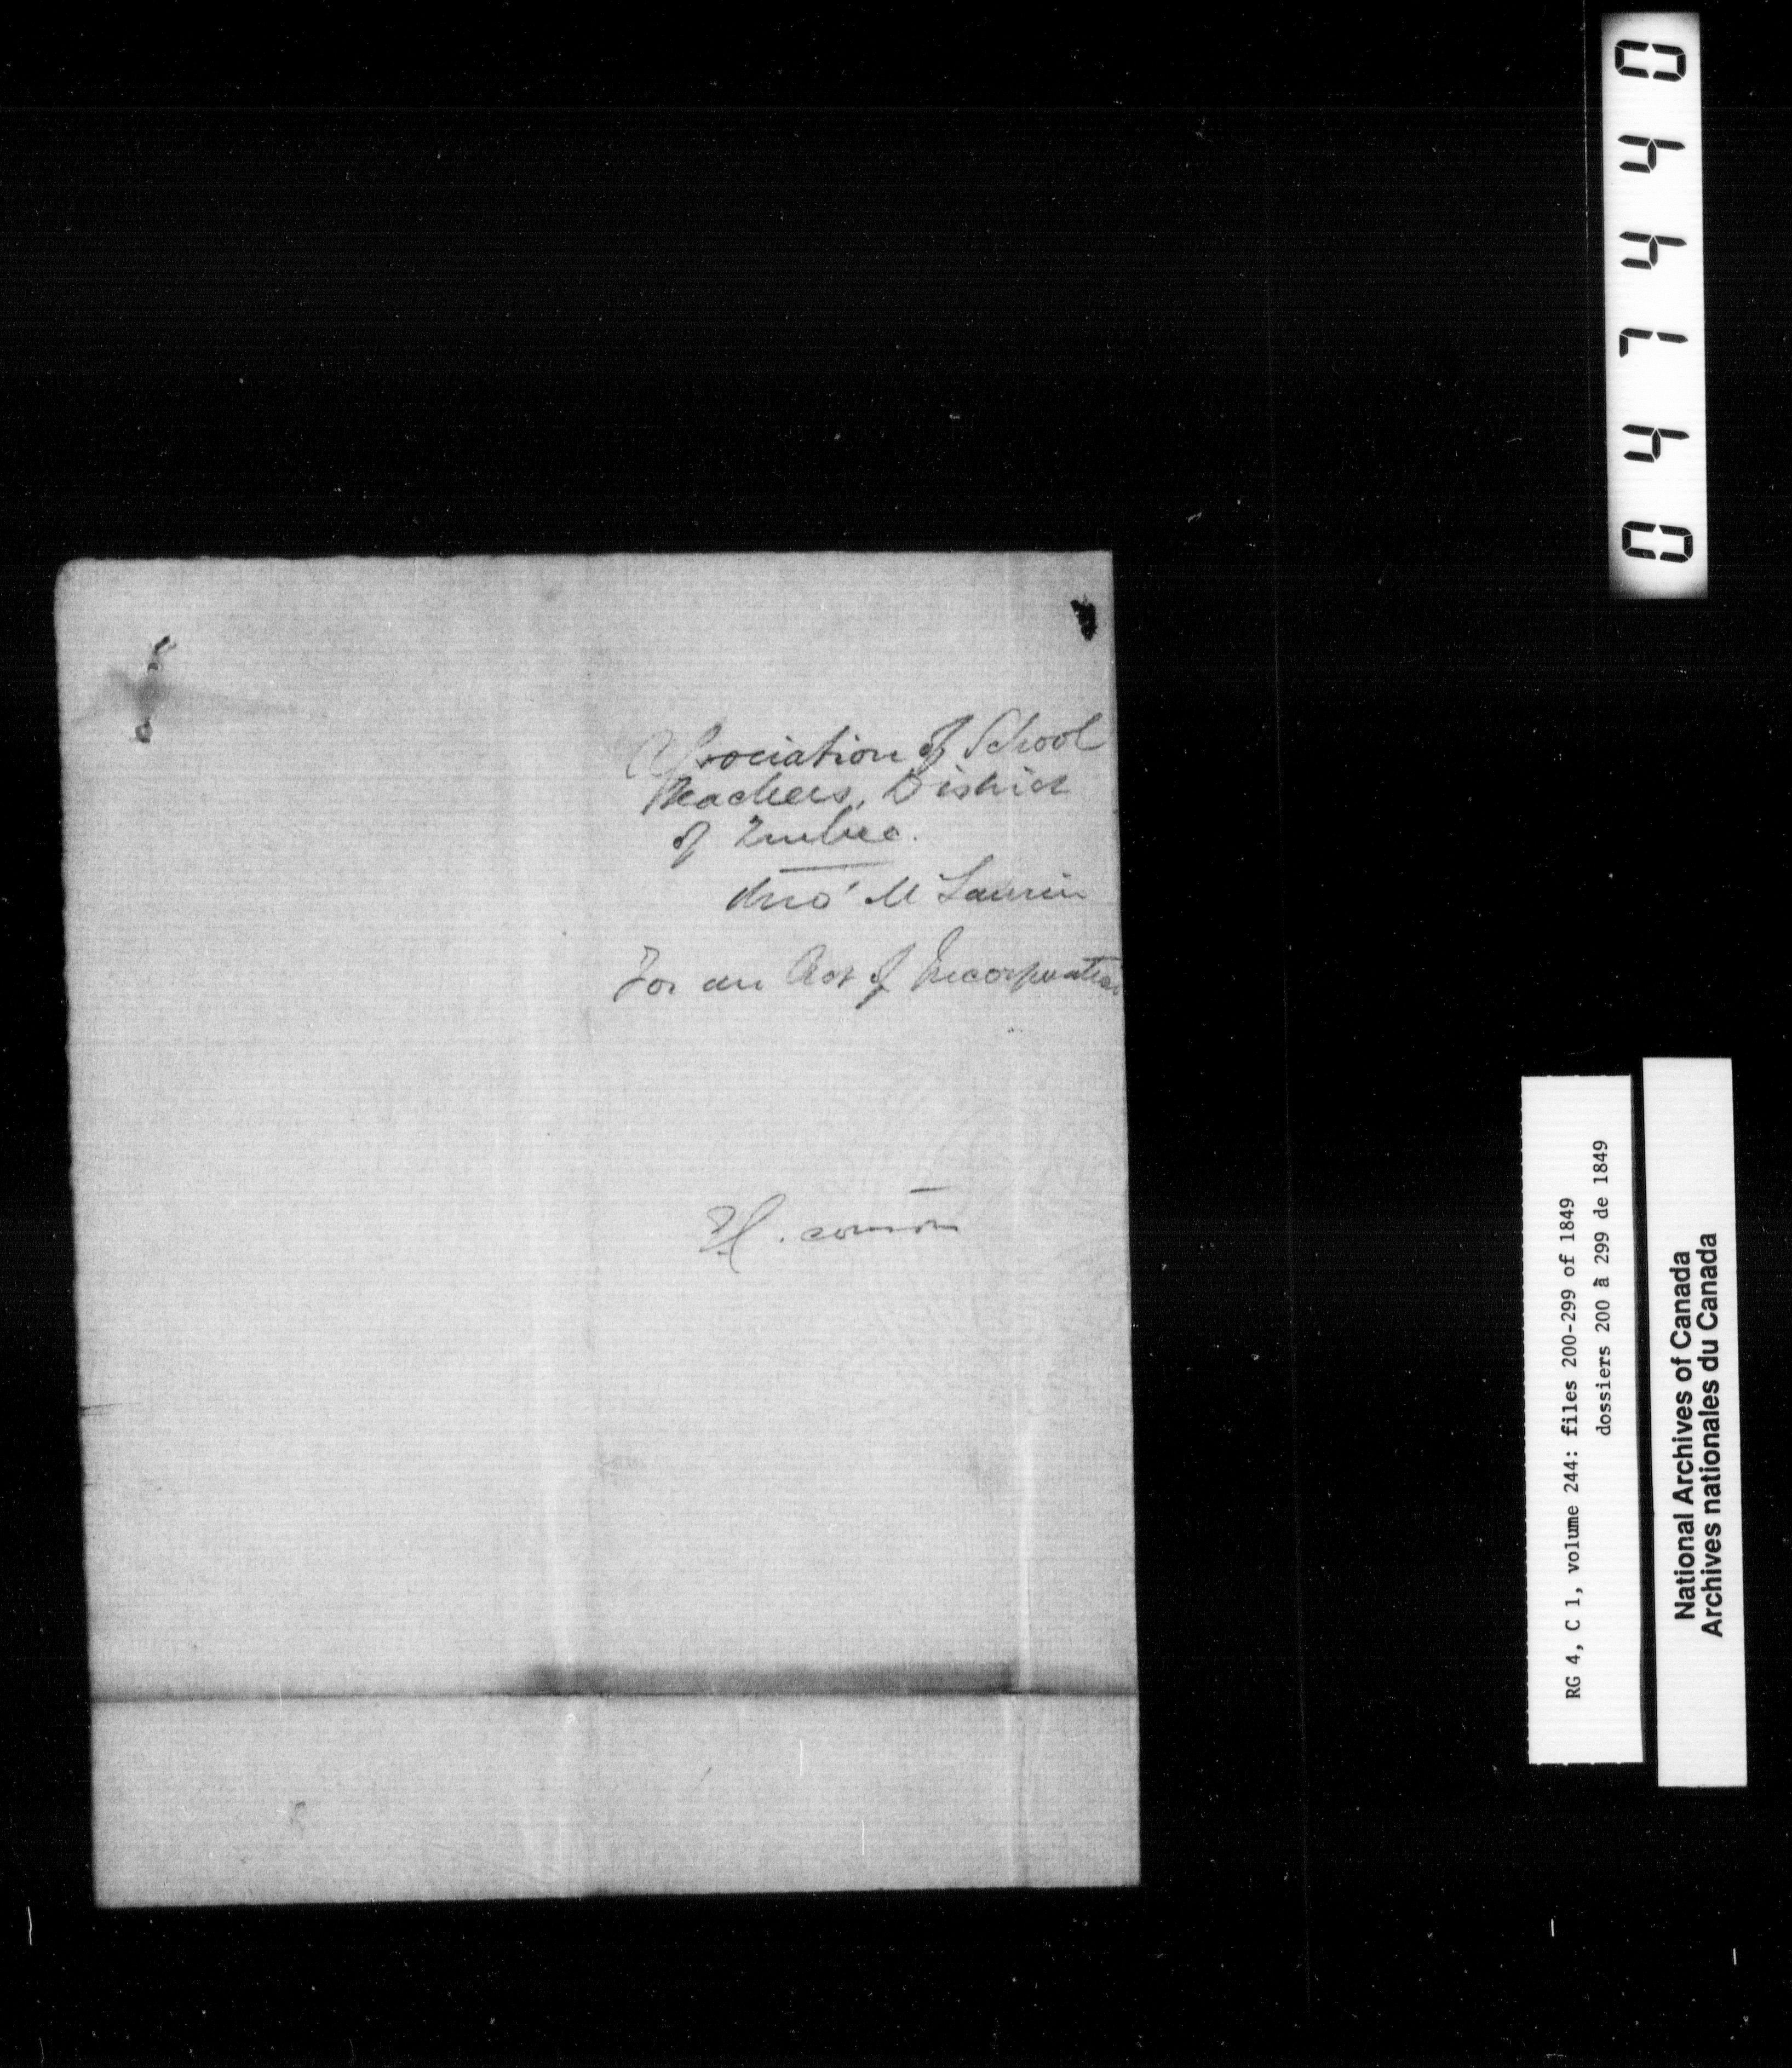 Association of School
Teachers, District
of Quebec.
Laurin
For an Act of Incorporation
RG 4, C 1, volume 244: files 200-299 of 1849
dossiers 200 à 299 de 1849
National Archives of Canada
Archives nationales du Canada
047440